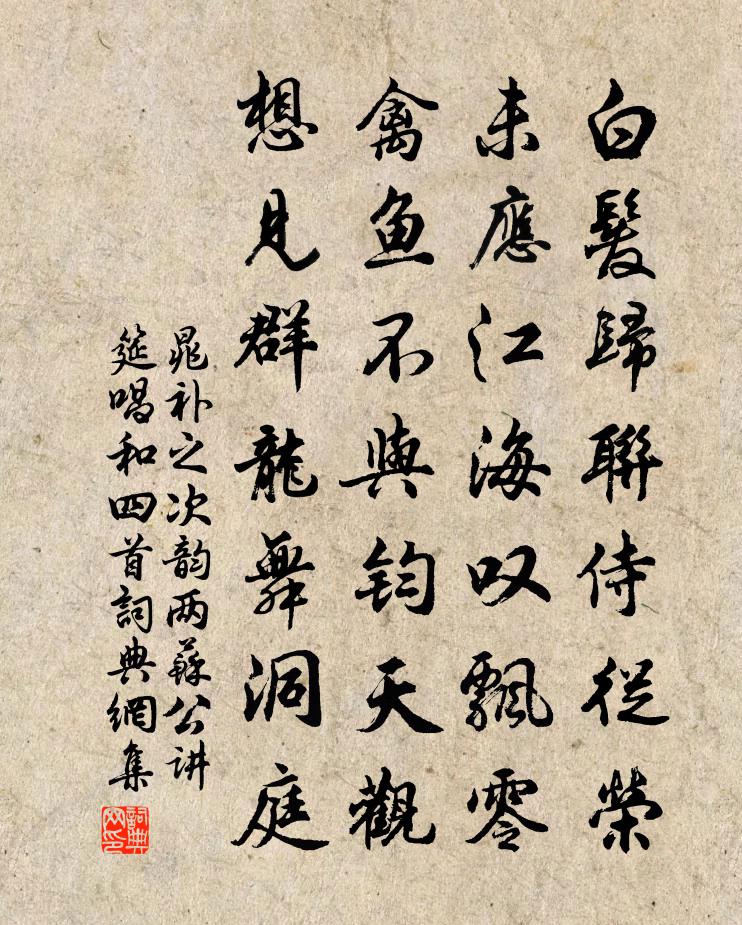 白髮歸聯侍從榮
未應江海叹飄零
禽魚不與鈞天觀
想見群龍舞洞庭
晁补之次韵两蘇公讲
筵唱和四首詞典網集
詞典网印